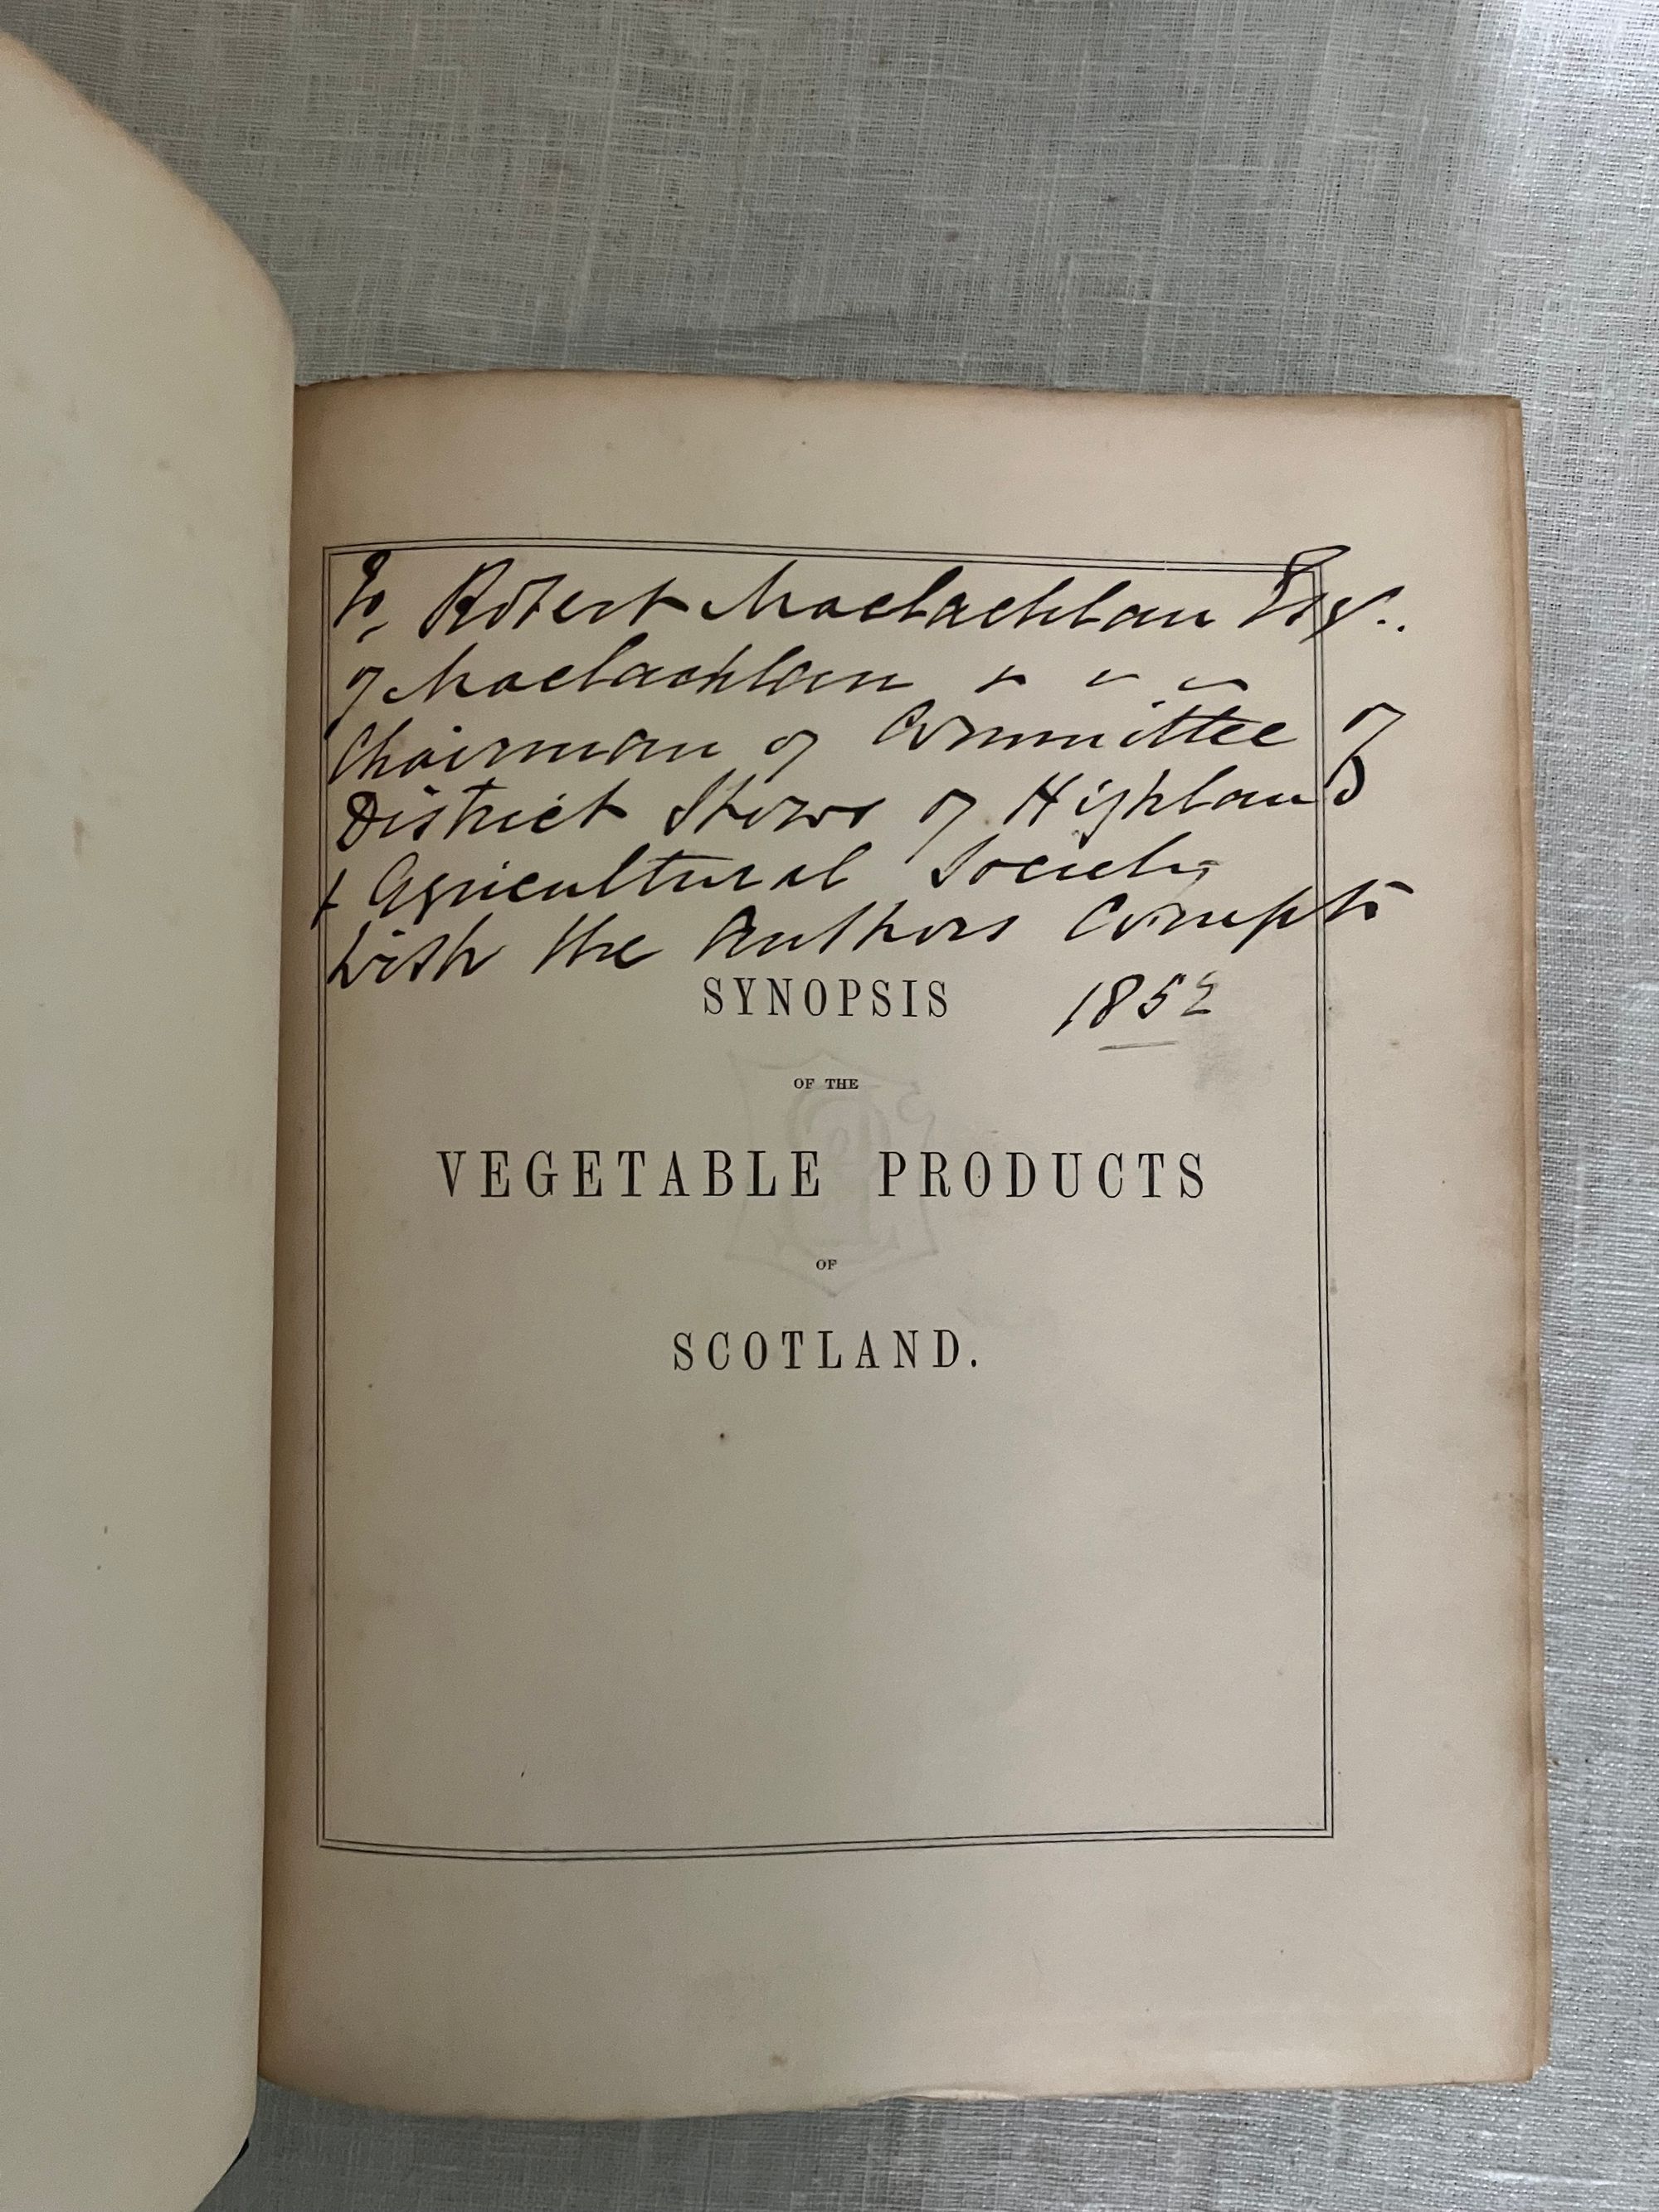 To, Robert Maclachlan Esqr..
of Maclachlan
Chairman of Committee of
District Shows of Highland
& Agricultural Society
With the Authors Compts
1852
SYNOPSIS
OF THE
VEGETABLE PRODUCTS
OF
SCOTLAND.